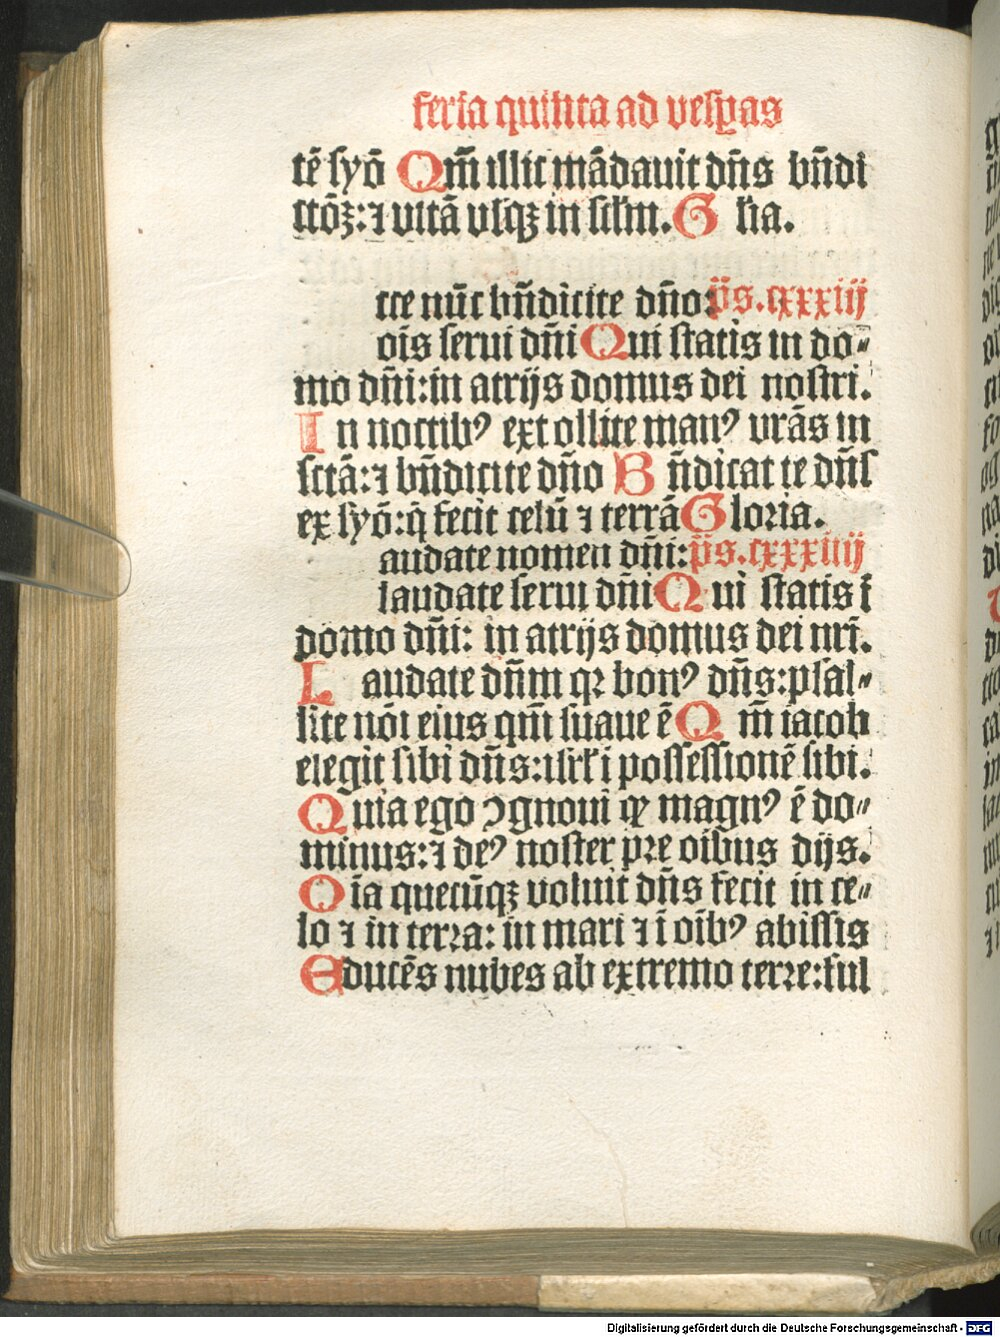 feria quinta ad vesꝑas
tē syō Qm̄ illic mādauit dn̄s bn̄di
ctōꝫ: ⁊ vitā vsqꝫ in scłm. G lia.
cce nūc bn̄dicite dn̄o: p̄s.cxxxiij
oīs serui dn̄i Qui statis in do⸗
mo dn̄i: in atrijs domus dei nostri.
In noctibꝰ extollite manꝰ vrās in
sctā: ⁊ bn̄dicite dn̄o Bn̄dicat te dn̄s
ex syō: q̇ fecit celū ⁊ terrā Gloria.
audate nomen dn̄i: p̄s.cxxxiiij
laudate serui dn̄i Qui statis ī
domo dn̄i: in atrijs domus dei nrī.
Laudate dn̄m qꝛ bonꝰ dn̄s: psal⸗
lite nōi eius qm̄ suaue ē Qm̄ iacob
elegit sibi dn̄s: isrł i possessionē sibi.
Quia ego ↄgnoui ꝙ magnꝰ ē do⸗
minus: ⁊ deꝰ noster pre oībus dijs.
Oīa quecūqꝫ voluit dn̄s fecit in ce⸗
lo ⁊ in terra: in mari ⁊ ī oībꝰ abissis
Educēs nubes ab extremo terre: ful
Digitalisierung gefördert durch die Deutsche Forschungsgemeinschaft - DFG